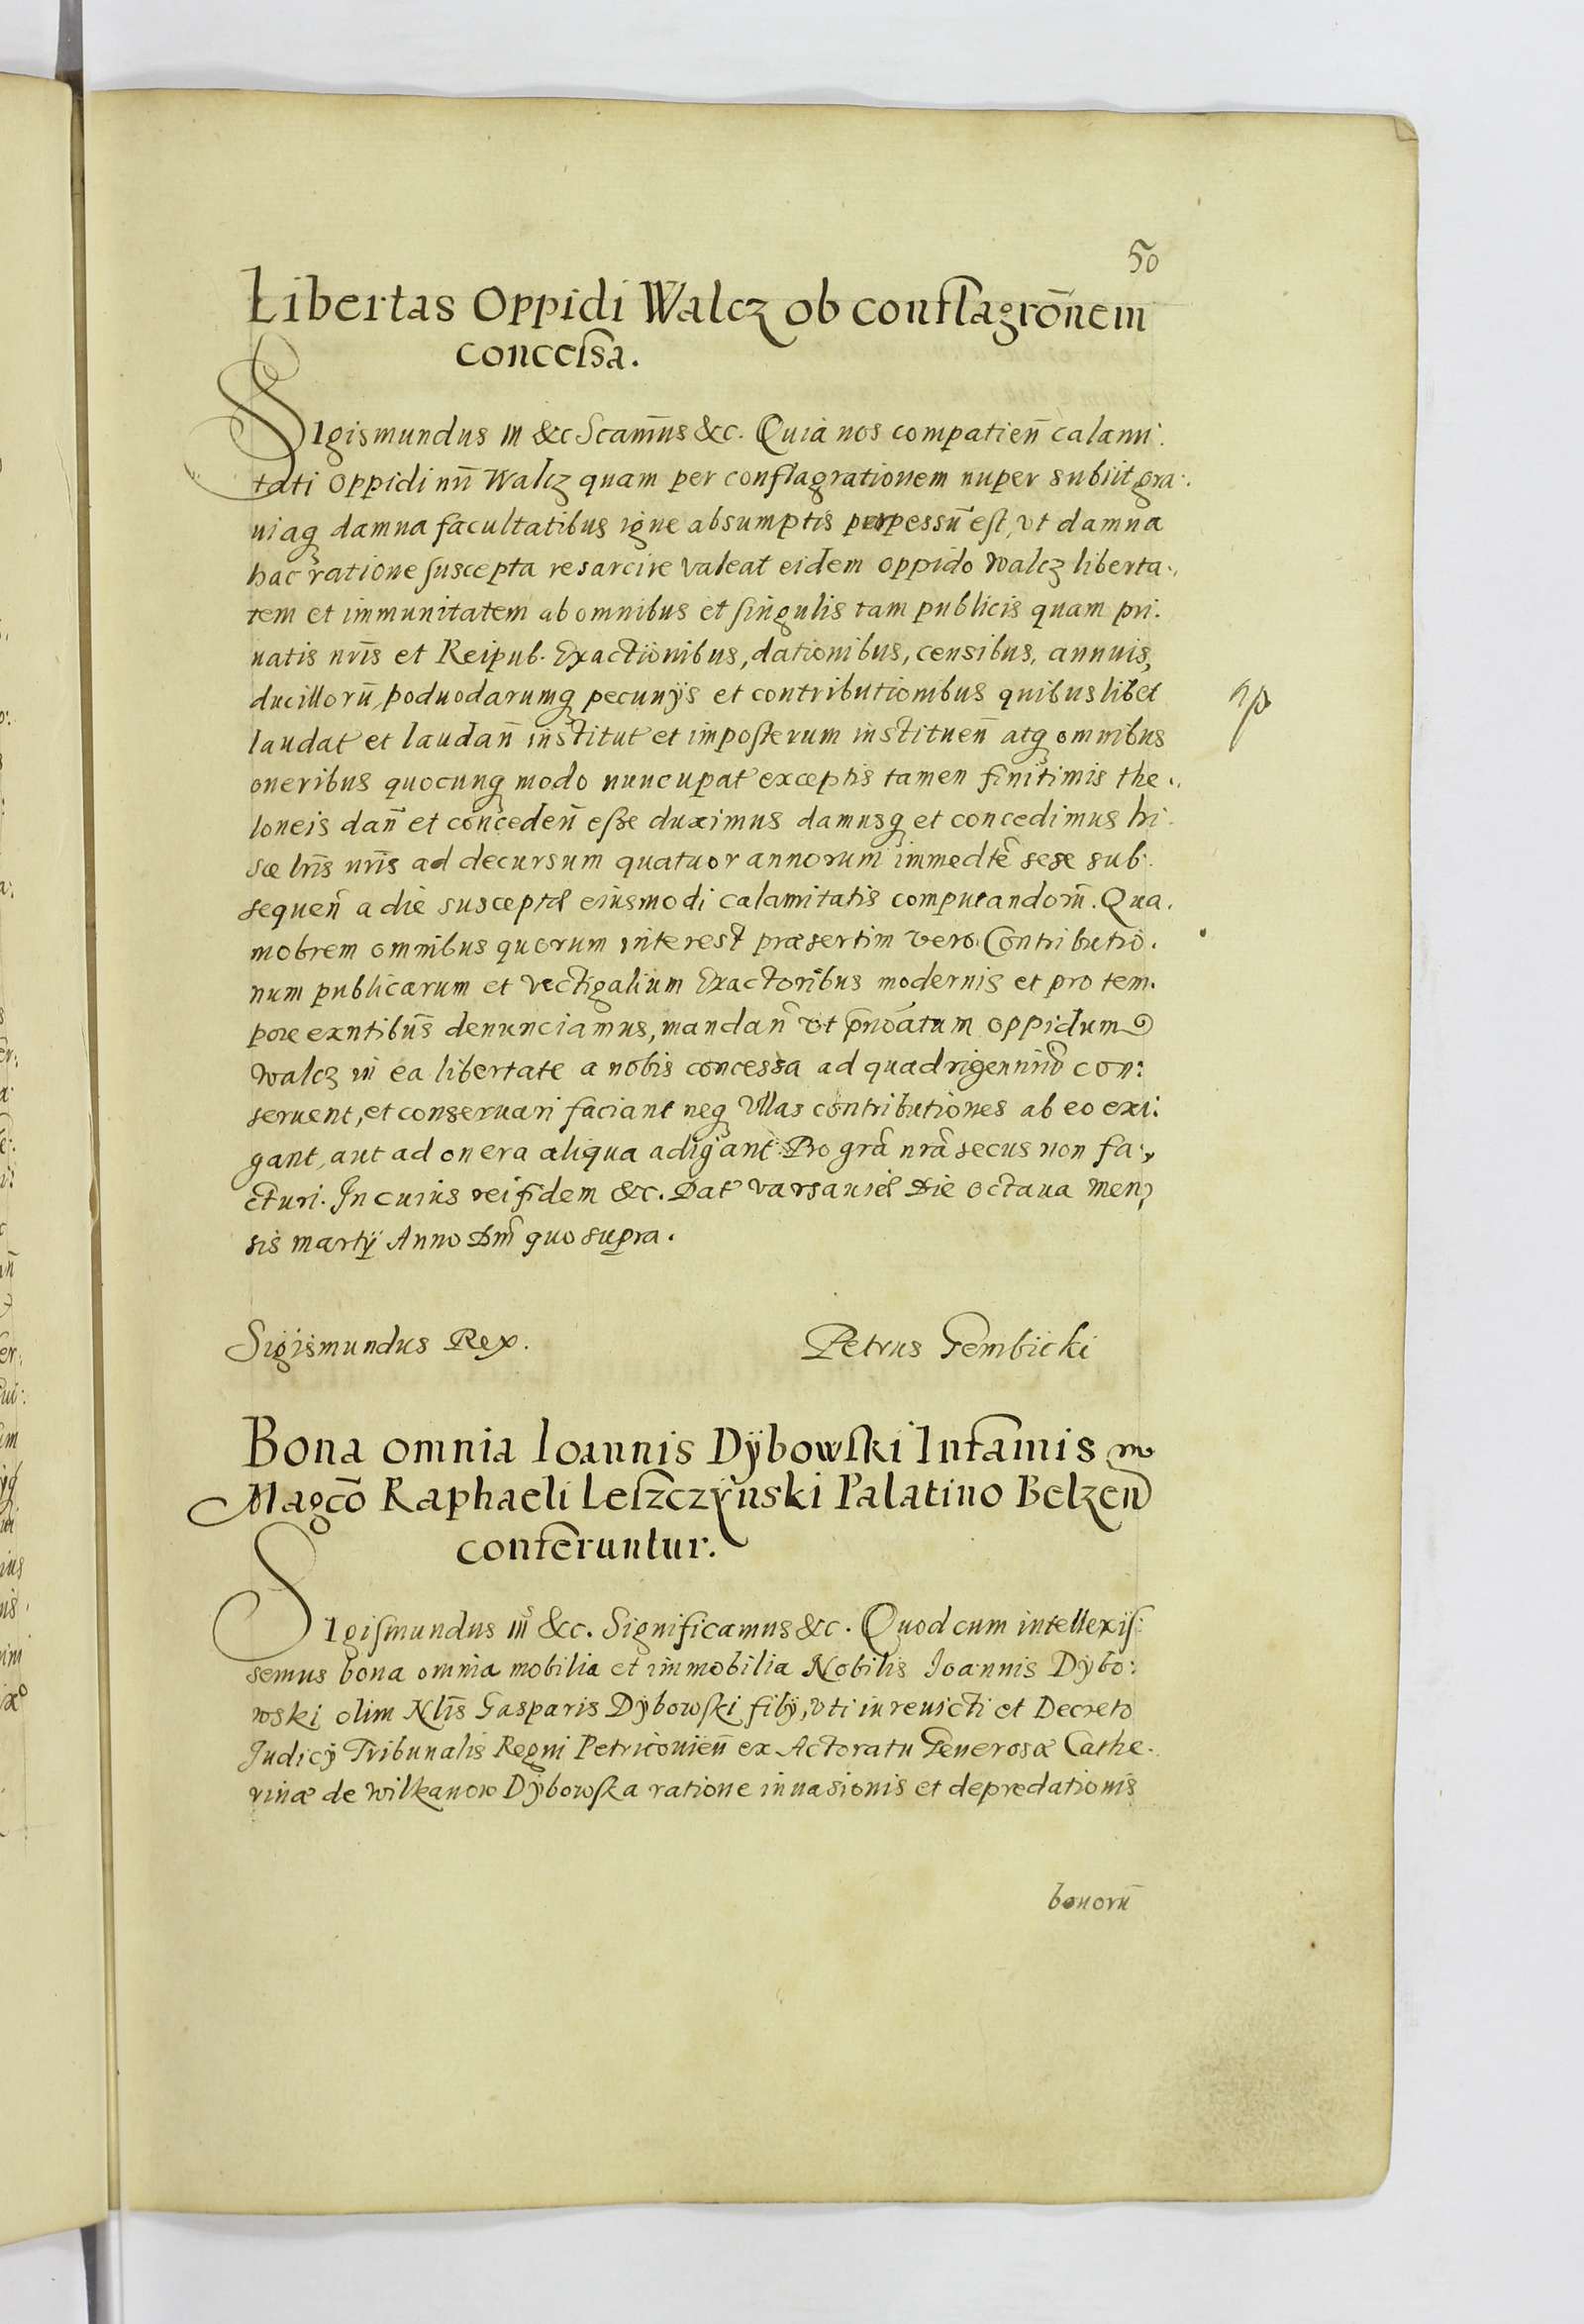 50
Libertas Oppidi Walcz ob conflagrōnem
concessa.
Sigismundus III &c Scamūs &c. Quia nos compatien̄ calami:
tati oppidi nr̄i Walcz quam per conflagrationem nuper subiit gra:
uiaq damna facultatibus igne absumptis perpessū est, vt damna
hac ratione suscepta resarcire valeat eidem oppido Walcz liberta:
tem et immunitatem ab omnibus et singulis tam publicis quam pri:
uatis nrīs et Reipub. Exactionibus, dationibus, censibus, annuis,
ducillorū, poduodarumq pecunijs et contributionibus quibuslibet
laudat et laudan̄ institut et imposterum instituen̄ atq omnibus
oneribus quocunq modo nuncupat exceptis tamen finitimis the:
loneis dan̄ et conceden̄ esse duximus damusq et concedimus hi
sce lrīs nrīs ad decursum quatuor annorum immedtē sese sub:
sequen̄ a die susceptæ eiusmodi calamitatis computandorū. Qua.
mobrem omnibus quorum interest præsertim vero Contributio.
num publicarum et vectigalium Exactoribus modernis et pro tem.
pore exn̄tibus denunciamus, mandan̄ vt prn̄oatum oppidum
Walcz in ea libertate a nobis concessa ad quadrigenniū con:
seruent, et conseruari faciant neq vllas contributiones ab eo exi:
gant, aut ad onera aliqua adigant Pro grā nrā secus non fa:
cturi. In cuius rei fidem &c. Dat Varsauiæ Die octaua men
sis martij Anno Dn̄i quo supra.
Sigismundus Rex.
Petrus Gembicki
Bona omnia Ioannis Dÿbowski Infamis
Magcō Raphaeli Leszczÿnski Palatino Belzen̄
conferuntur.
Sigismundus III &c. Significamus &c. Quod cum intellexis:
semus bona omnia mobilia et immobilia Nobilis Ioannis Dÿbo:
wski olim Nlīs Gasparis Dÿbowski filÿ, vti inreuicti et Decreto
Judicÿ Tribunalis Regni Petricouien̄ ex Actoratu Generosæ Cathe.
rinæ de Wilkanow Dÿbowska ratione inuasionis et depredationis
bonorū